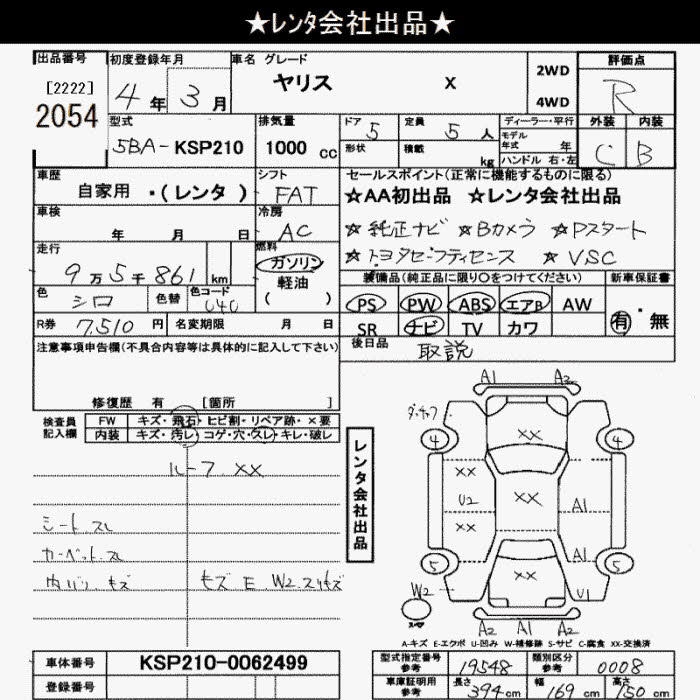 ★レンタ会社出品★
出品番号
[2222]
2054
初度登録年月
4年3月
車名 グレード
ヤリス X
2WD
4WD
評価点
R
外装 内装
C B
型式
5BA-KSP210
排気量
1000 cc
ドア
5
定員
5人
形状
積載
kg
ディーラー・平行
モデル年式 年
ハンドル 右・左
車歴
自家用 ・(レンタ )
シフト
FAT
セールスポイント(正常に機能するものに限る)
★AA初出品 ★レンタ会社出品
☆純正ナビ ☆Bカメラ ☆Pスタート
☆トヨタセーフティセンス ☆VSC
車検
年 月 日
冷房
AC
走行
9万5千861km
燃料
ガソリン
軽油
( )
色
シロ
色替
色コード
040
R券 7,510円
名変期限 月 日
装備品(純正品に限り○をつけてください)
PS PW ABS エアB AW
SR ナビ TV カワ
新車保証書
有・無
後日品
取説
注意事項申告欄(不具合内容等は具体的に記入して下さい)
修復歴 有 [箇所 ]
検査員記入欄
FW キズ・飛石・ヒビ割・リペア跡・×要
内装 キズ・汚レ・コゲ・穴・スレ・キレ・破レ
ルーフ XX
シート スレ
カーペット スレ
内バリ キズ
キズ E W2 スリキズ
レンタ会社出品
A1 A2
4 4
XX
XX
U2
XX
XX
A1
XX
A1
5 5
W2
U1
A2 A1 A2
A-キズ E-エクボ U-凹み W-補修跡 S-サビ C-腐食 XX-交換済
車体番号
KSP210-0062499
登録番号
型式指定番号参考
19548
類別区分参考
0008
車庫証明用参考
長さ 394cm 幅 169cm 高さ 150cm